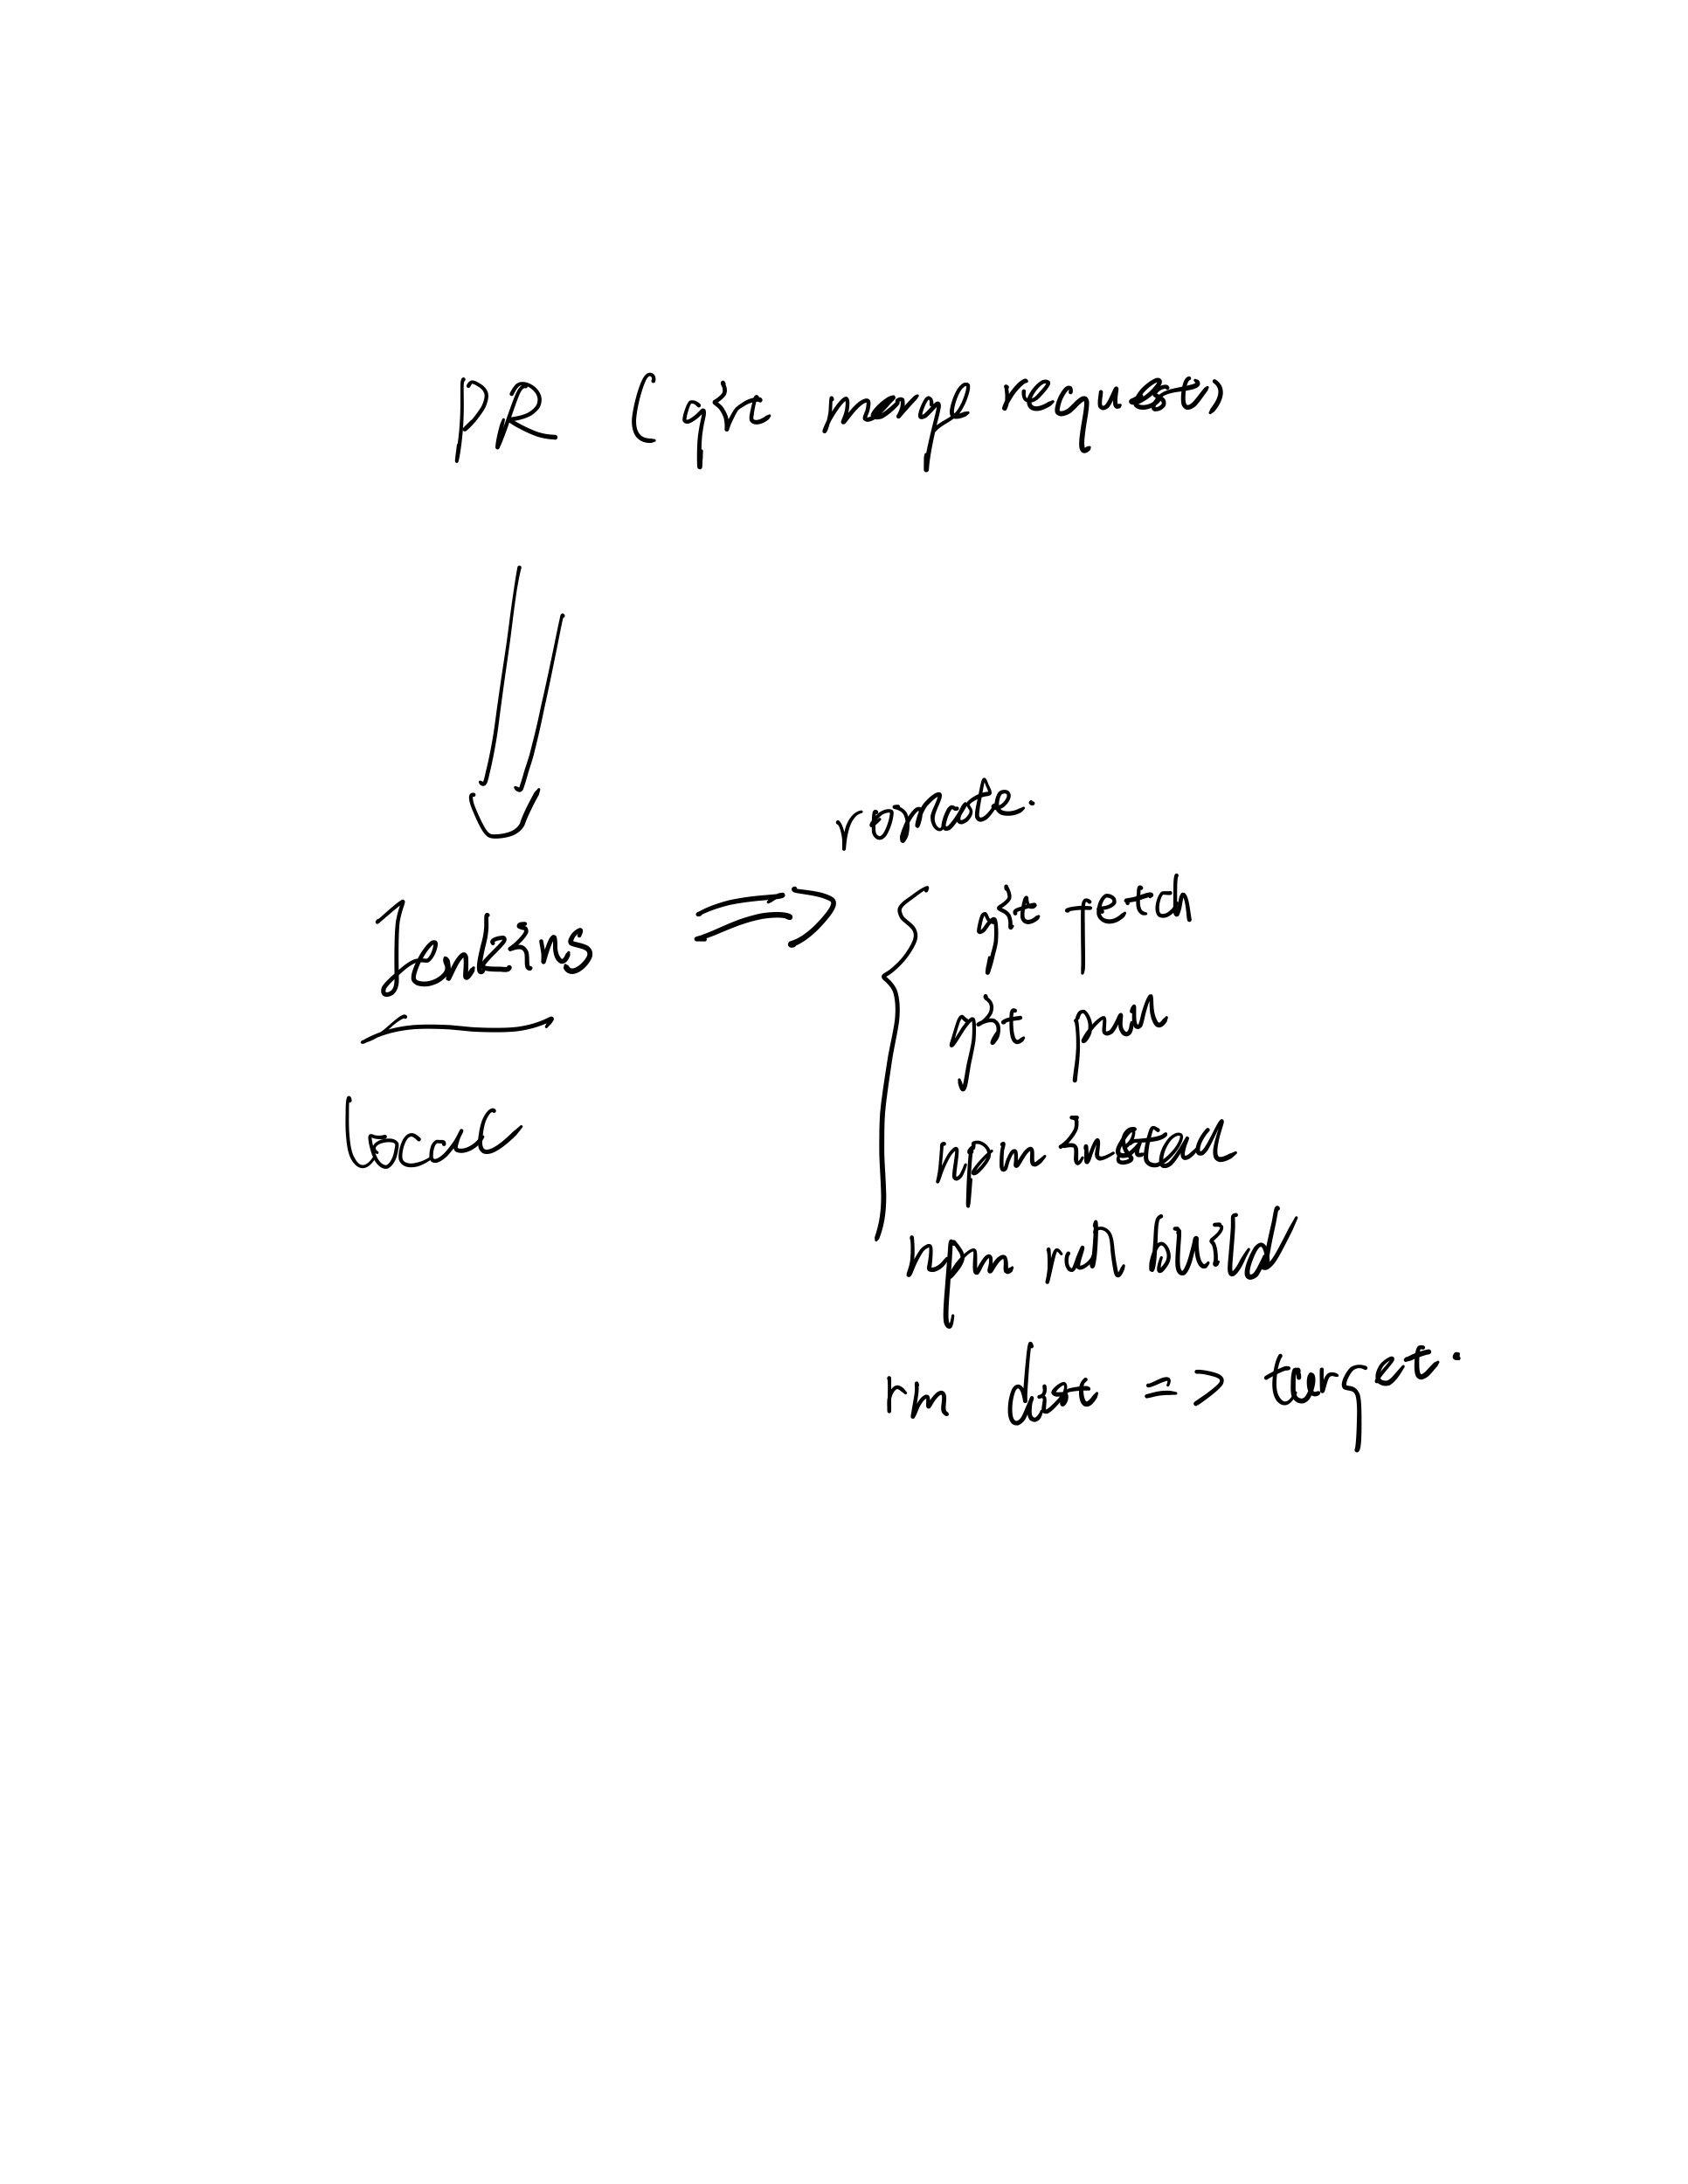 PR (git merge request)
remote.
Jenkins => { git fetch
git pull
local
npm install
npm run build
dist => target.